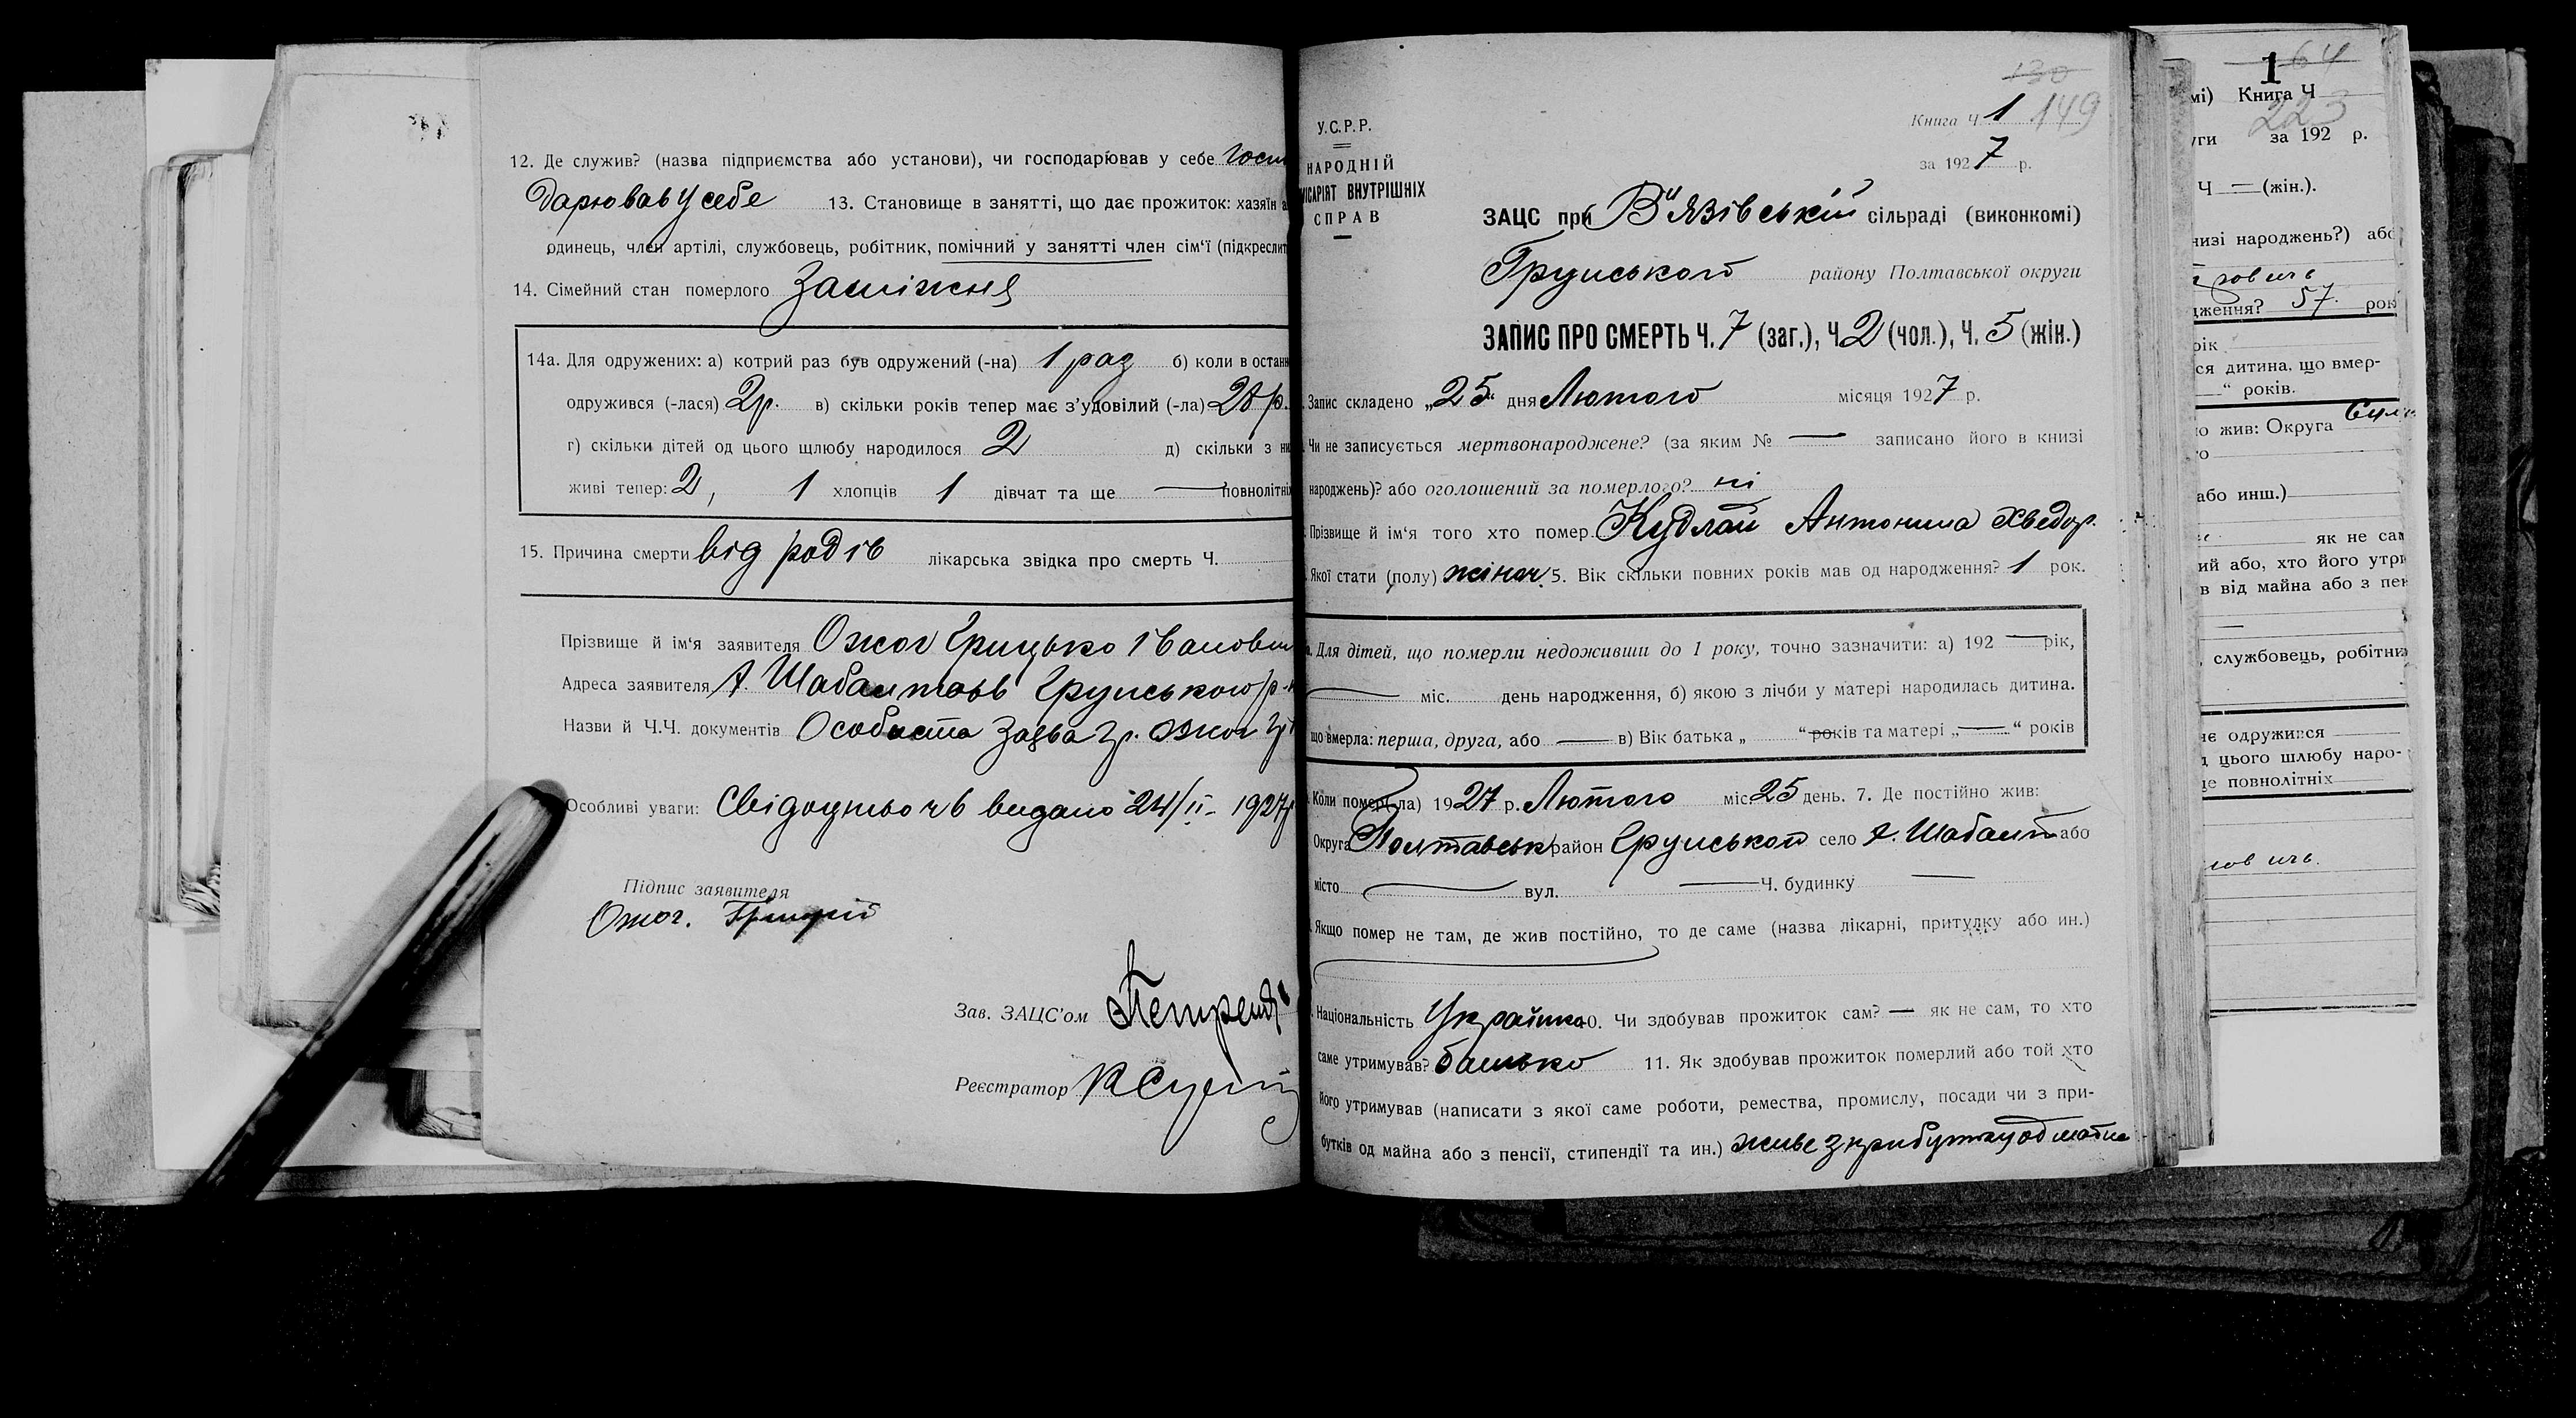 12. Де служив? (назва підприємства або установи), чи господарював у себе госпо
дарював у себе 13. Становище в занятті, що дає прожиток: хазяїн а
одинець, член артілі, службовець, робітник, помічний у занятті член сім'ї (підкреслит
14. Сімейний стан померлого Заміжня
14а. Для одружених: а) котрий раз був одружений (-на) 1 раз б) коли в останн
одружився (-лася) 2р. в) скільки років тепер має з'удовілий (-ла) 28 р.
г) скільки дітей од цього шлюбу народилося 2 д) скільки з ни
живі тепер: 2, 1 хлопців 1 дівчат та ще — повнолітніх
15. Причина смерти від родів лікарська звідка про смерть Ч.
Прізвище й ім'я заявителя Ожог Грицько Іванови
Адреса заявителя х. Шабалтаєв Грунського р-н
Назви й Ч.Ч. документів Особиста заява гр. Ожог Гр
Особливі уваги: Свідоцтво ч 6 видано 24/II - 1927р
Підпис заявителя
Ожог. Григорій
Зав. ЗАЦС'ом
Реєстратор
130
Книга Ч. 1 149
за 1927 р.
У.С.Р.Р.
НАРОДНІЙ
МІСАРІЯТ ВНУТРІШНІХ
СПРАВ
ЗАЦС при В'язівській сільраді (виконкомі)
Грунського району Полтавської округи
ЗАПИС ПРО СМЕРТЬ Ч. 7 (заг.), Ч. 2 (чол.), Ч. 5 (жін.)
Запис складено „25" дня Лютого місяця 1927 р.
Чи не записується мертвонароджене? (за яким № — записано його в книзі
народжень)? або оголошений за померлого? ні
Прізвище й ім'я того хто помер Кудлай Антонина Хведор.
Якої стати (полу) жіноч. 5. Вік скільки повних років мав од народження? 1 рок.
Для дітей, що померли недоживши до 1 року, точно зазначити: а) 192 — рік,
— міс. день народження, б) якою з лічби у матері народилась дитина.
що вмерла: перша, друга, або — в) Вік батька „ " років та матері „—" років
Коли помер(-ла) 1927 р. Лютого міс 25 день. 7. Де постійно жив:
Округа Полтавськ район Грунськой село х. Шабалт або
місто — вул. — Ч. будинку —
Якщо помер не там, де жив постійно, то де саме (назва лікарні, притулку або ин.)
Національність Українка 10. Чи здобував прожиток сам? — як не сам, то хто
саме утримував? батько 11. Як здобував прожиток померлий або той хто
його утримував (написати з якої саме роботи, ремества, промислу, посади чи з при-
бутків од майна або з пенсії, стипендії та ин.) живе з прибутку од майна
1 64
мі) Книга Ч
223
уги за 192 р.
Ч — (жін.).
низі народжень?) або
дження? 57 рок
рік
ся дитина, що вмер-
—" років.
о жив: Округа
го
або инш.)
як не сам
ий або, хто його утри
в від майна або з пен
, службовець, робітник
не одружився
д цього шлюбу наро-
ще повнолітніх